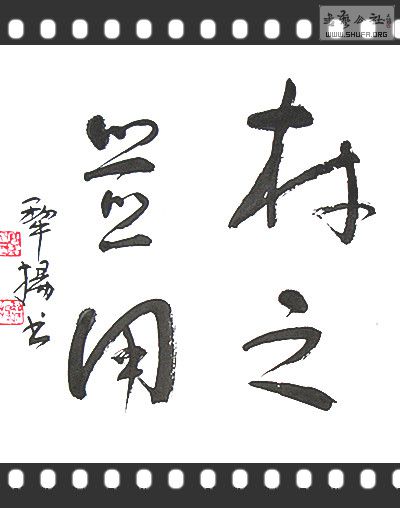 材之
並用
犁揚书
書藝公社
WWW.SHUFA.ORG